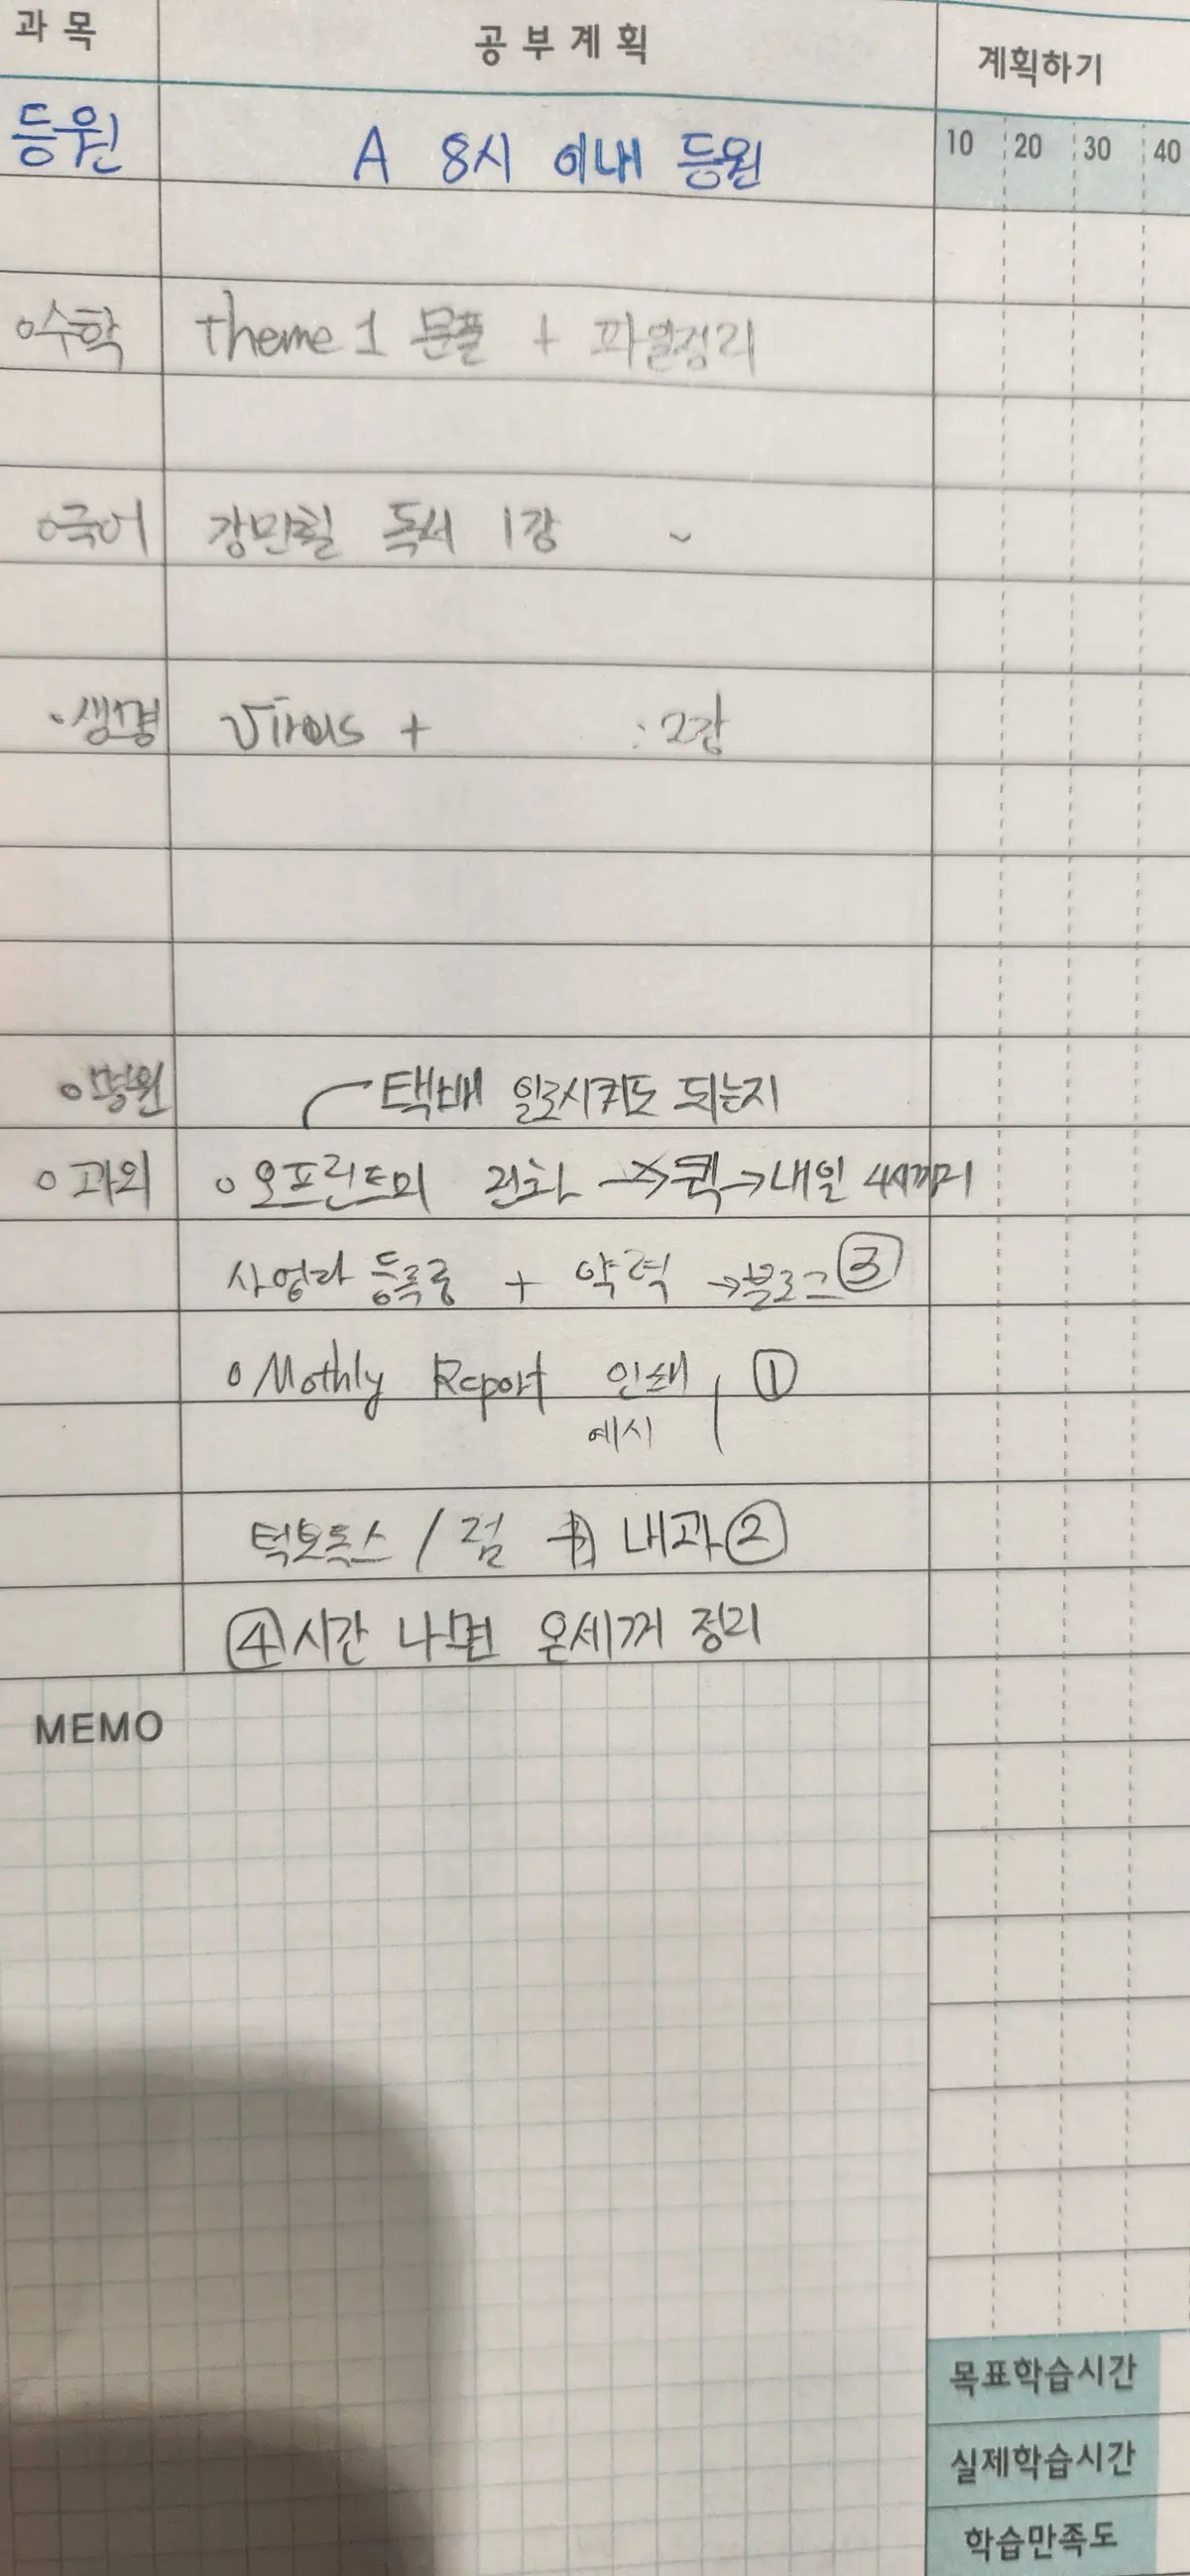 과목 공부계획 계획하기
10 20 30 40
등원 A 8시 이내 등원
수학 theme 1 문풀 + 파일정리
국어 강민철 독서 1강 ~
생명 Virus + : 2강
병원 택배 일로시켜도 되는지
과외 오프린트미 전화 → 퀵 → 내일 4시까지
사업자 등록증 + 약력 → 블로그 ③
Mothly Report 인쇄 ①
예시
턱보톡스 / 점 내과 ②
④ 시간 나면 온세꺼 정리
MEMO
목표학습시간
실제학습시간
학습만족도